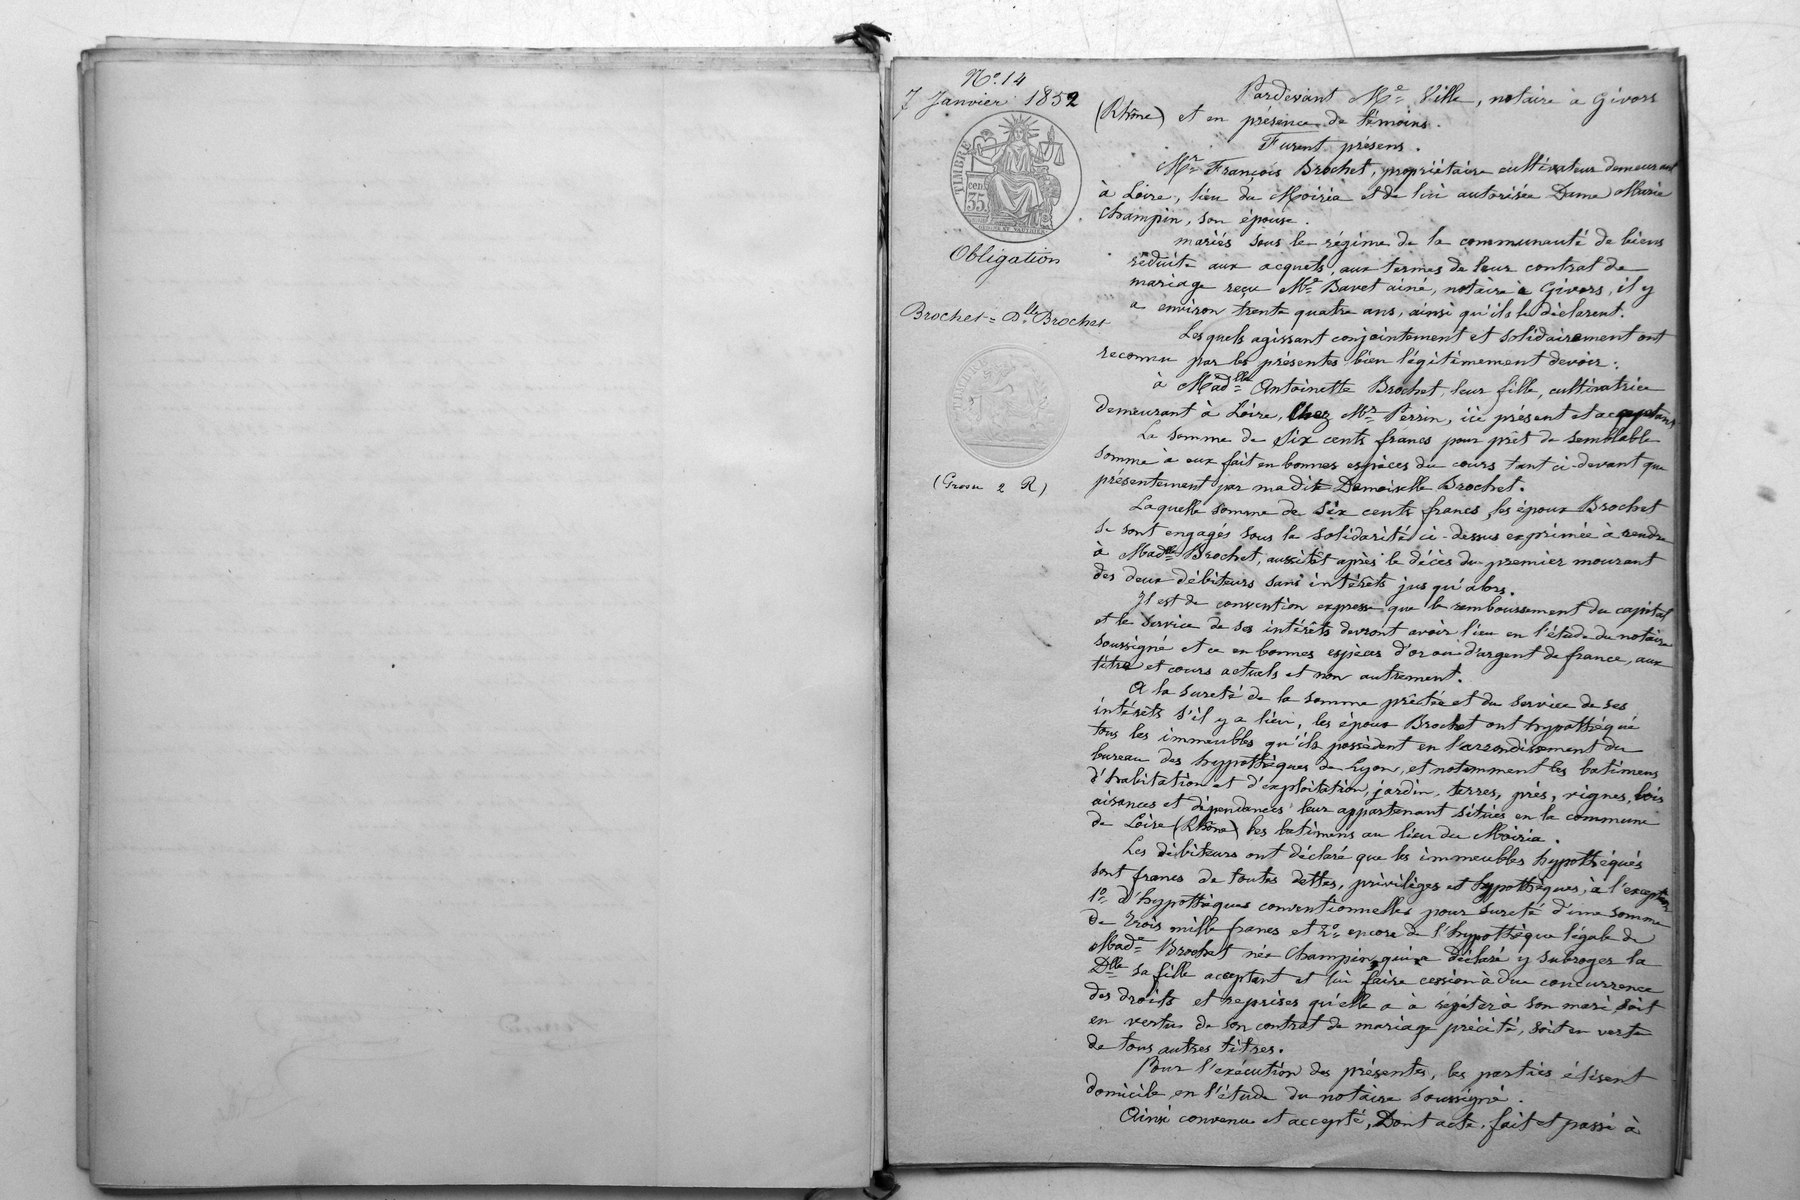 N° 14
7 Janvier 1852
TIMBRE
cen.
35
Obligation
Brochet = Dlle Brochet
(Grosse 2 R)
Pardevant Me Ville, notaire à Givors
(Rhône) et en présence de témoins.
Furent présens.
Mr François Brochet, propriétaire cultivateur demeurant
à Loire, lieu du Moiria et de lui autorisée Dame Marie
Champin, son épouse.
mariés sous le régime de la communauté de biens
réduite aux acquets, aux termes de leur contrat de
mariage reçu Me Bavet ainé, notaire à Givors, il y
a environ trente quatre ans, ainsi qu'ils le déclarent.
Lesquels agissant conjointement et solidairement ont
reconnu par les présentes bien légitimement devoir :
à Madlle Antoinette Brochet, leur fille, cultivatrice
demeurant à Loire, chez Mr Perrin, ici présent et acceptant
La somme de six cents francs pour prêt de semblable
somme à eux fait en bonnes espèces du cours tant ci-devant que
présentement par madite Demoiselle Brochet.
Laquelle somme de six cents francs, les époux Brochet
se sont engagés sous la solidarité ci-dessus exprimée à rendre
à Madlle Brochet, aussitôt après le décès du premier mourant
des deux débiteurs sans intérêts jusqu'alors.
Il est de convention expresse que le remboursement du capital
et le service de ses intérêts devront avoir lieu en l'étude du notaire
soussigné et ce en bonnes espèces d'or ou d'argent de france, aux
titre et cours actuels et non autrement.
A la sureté de la somme prêtée et du service de ses
intérêts s'il y a lieu, les époux Brochet ont hypothéqué
tous les immeubles qu'ils possèdent en l'arrondissement du
bureau des hypothèques de Lyon, et notamment les batimens
d'habitation et d'exploitation, jardin, terres, près, vignes, bois
aisances et dépendances leur appartenant situés en la commune
de Loire (Rhône) les batimens au lieu du Moiria.
Les débiteurs ont déclaré que les immeubles hypothéqués
sont francs de toutes dettes, privilèges et hypothèques, à l'exception
1° d'hypothèques conventionnelles pour sureté d'une somme
de trois mille francs et 2° encore de l'hypothèque légale de
Made Brochet née Champin, qui a déclaré y subroger la
Dlle sa fille acceptant et lui faire cession à due concurrence
des droits et reprises qu'elle a à répéter à son mari, soit
en vertu de son contrat de mariage précité, soit en vertu
de tous autres titres.
Pour l'exécution des présentes, les parties élisent
domicile en l'étude du notaire soussigné.
Ainsi convenu et accepté, Dont acte, fait et passé à